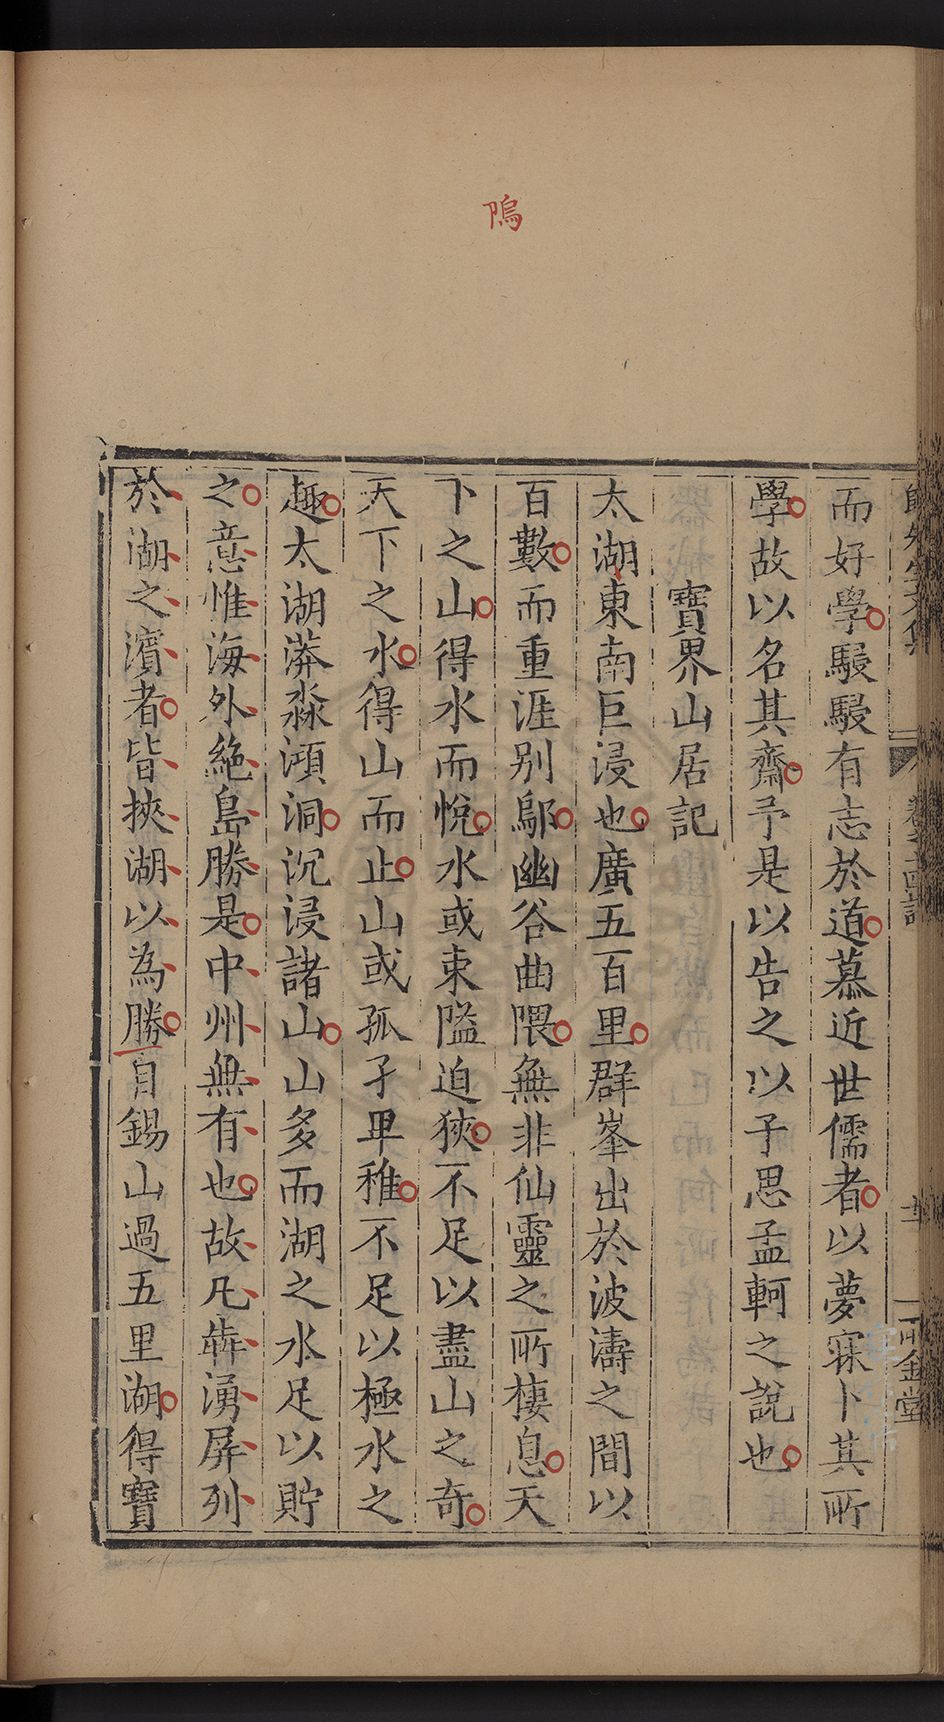 隝
而好學駸駸有志於道慕近世儒者以夢寐卜其所
學故以名其齋予是以告之以子思孟軻之說也
寶界山居記
太湖東南巨浸也廣五百里群峯出於波濤之間以
百數而重涯別鄔幽谷曲隈無非仙靈之所棲息天
下之山得水而悅水或束隘迫狹不足以盡山之奇
天下之水得山而止山或孤孑卑稚不足以極水之
趣太湖漭淼澒洞沉浸諸山山多而湖之水足以貯
之意惟海外絶島勝是中州無有也故凡犇湧屏列
於湖之濱者皆挾湖以為勝自錫山過五里湖得寶